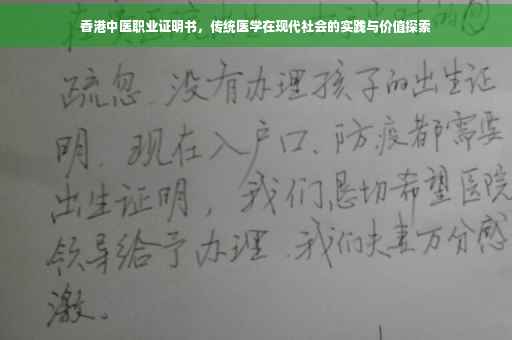 香港中医职业证明书，传统医学在现代社会的实践与价值探索
疏忽.没有办理孩子的出生证
明.现在入户口、防疫都需要
出生证明，我们恳切希望医院
领导给予办理.我们夫妻万分感
激。